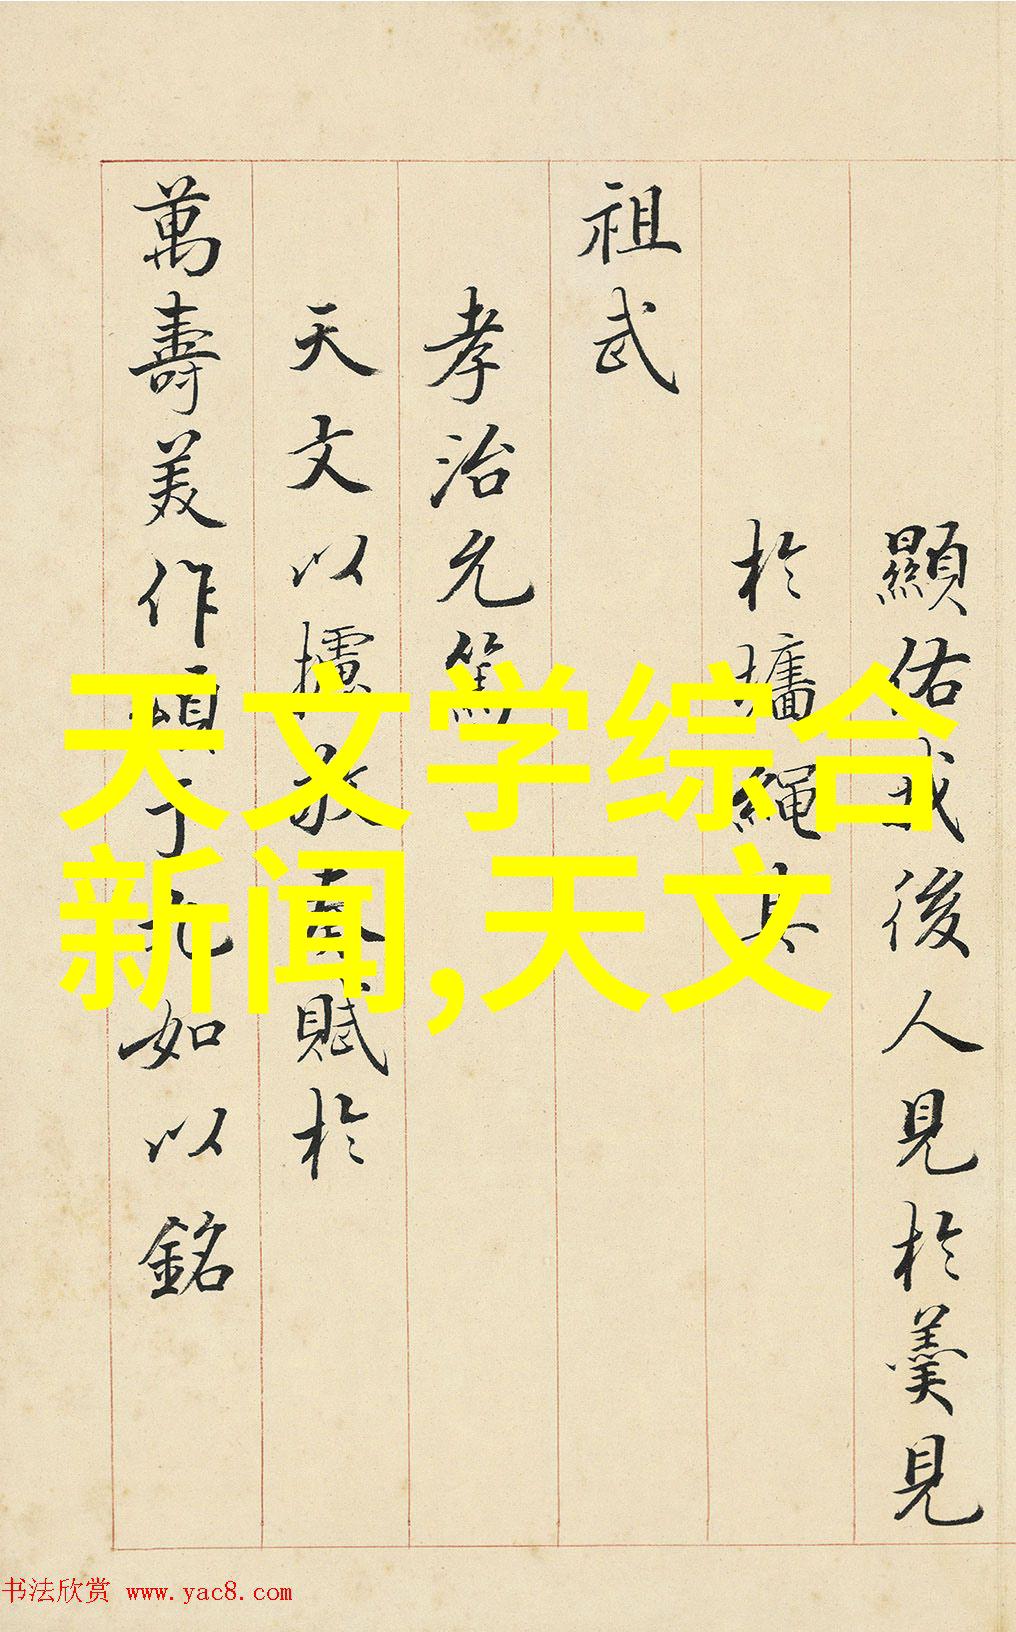 顯佑我後人見於羹見
於墻繩其
祖武
孝治允篤
天文以攄敬奏賦於
萬壽美作頌于九如以銘
天文学综合
新闻,天文
书法欣赏 www.yac8.com